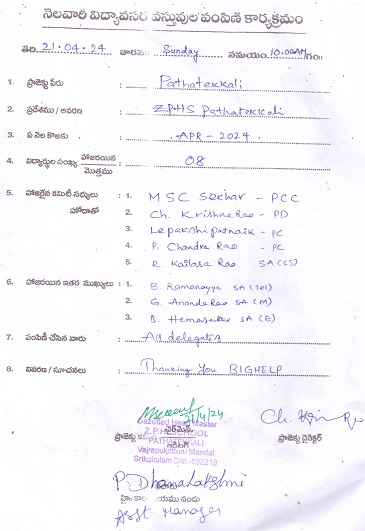 నెలవారీ విద్యావసర వస్తువుల పంపిణీ కార్యక్రమం
తేది 21.04.24 వారము Sunday సమయం 10.00AM గం॥
1. ప్రాజెక్టు పేరు : Pathatekkali
2. ప్రదేశము / ఆవరణ : ZPHS Pathatekkali
3. ఏ నెల కొఱకు : APR - 2024
4. విద్యార్థుల సంఖ్య హాజరయిన మొత్తము : 08
5. హాజరైన కమిటీ సభ్యులు హోదాతో : 1. M S C Sekhar - PCC
2. Ch. Krishna Rao - PD
3. Lepakshi patnaik - PC
4. P. Chandra Rao - PC
5. R. Kailasa Rao SA (SS)
6. హాజరయిన ఇతర ముఖ్యులు : 1. B. Ramanayya SA (Tel)
2. G. Ananda Rao SA (M)
3. B. Hemasekar SA (E)
7. పంపిణీ చేసిన వారు : All delegates
8. వివరణ / సూచనలు : Thanking You BIGHELP
21/4/24
Gazetted Head Master
Z.P.H. SCHOOL
PATHATEKKALI
Vajrapukotturu Mandal
Srikakulam Dist.-532218
ప్రాజెక్టు
ప్రాజెక్టు డైరెక్టర్
P. Dhanalakshmi
Asst Manager